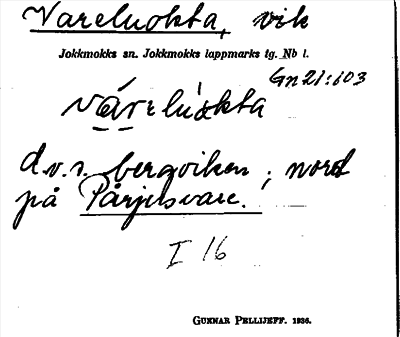 Vareluokta, vik
Jokkmokks sn. Jokkmokks lappmarks tg. Nb l.
Gn 21:603
várəlúokta
d.v.s. bergviken; nord
på Pårjelsvare.
I 16
GUNNAR PELLIJEFF. 1936.